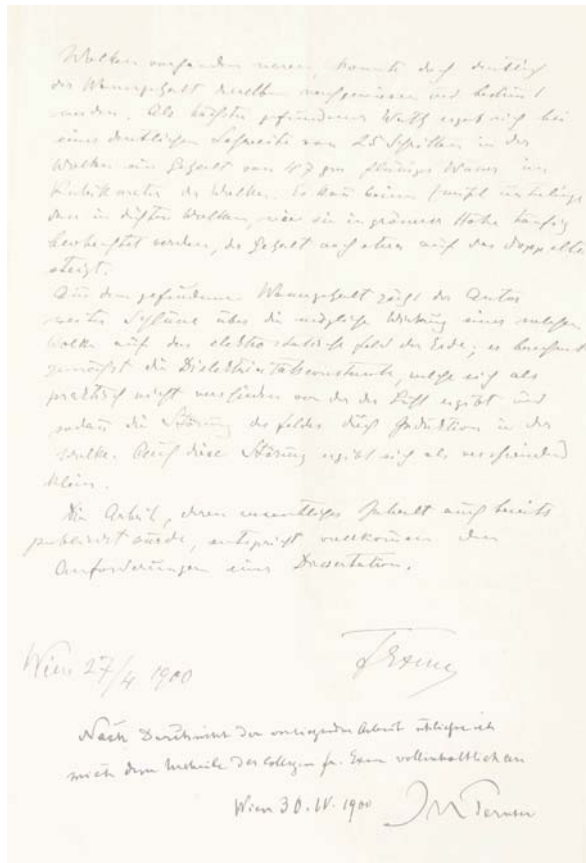 Wolken vorhanden waren, konnte doch deutlich
der Wassergehalt derselben nachgewiesen und bestimmt
werden. Als höchster gefundener Werth ergab sich bei
einer deutlichen Sehweite von 25 Schritten in der
Wolke ein Gehalt von 4·7 gm flüssiges Wasser im
Kubikmeter der Wolke. Es kann keinem Zweifel unterliegen,
dass in dichten Wolken, wie sie in grösserer Höhe häufig
beobachtet werden, der Gehalt noch etwa auf das Doppelte
steigt.
Aus dem gefundenen Wassergehalt zieht der Autor
weiter Schlüsse über die mögliche Wirkung einer solchen
Wolke auf das elektrostatische Feld der Erde; er berechnet
zunächst die Dielektricitätsconstante, welche sich als
praktisch nicht verschieden von der der Luft ergibt und
sodann die Störung des Feldes durch Induktion in der
Wolke. Auch diese Störung ergibt sich als verschwindend
klein.
Die Arbeit, deren wesentlicher Inhalt auch bereits
publicirt wurde, entspricht vollkommen den
Anforderungen einer Dissertation.
Wien 27/4 1900
F Exner
Nach Durchsicht der vorliegenden Arbeit schliesse ich
mich dem Urtheile des Collegen Fr. Exner vollinhaltlich an
Wien 30. IV. 1900
J M Pernter